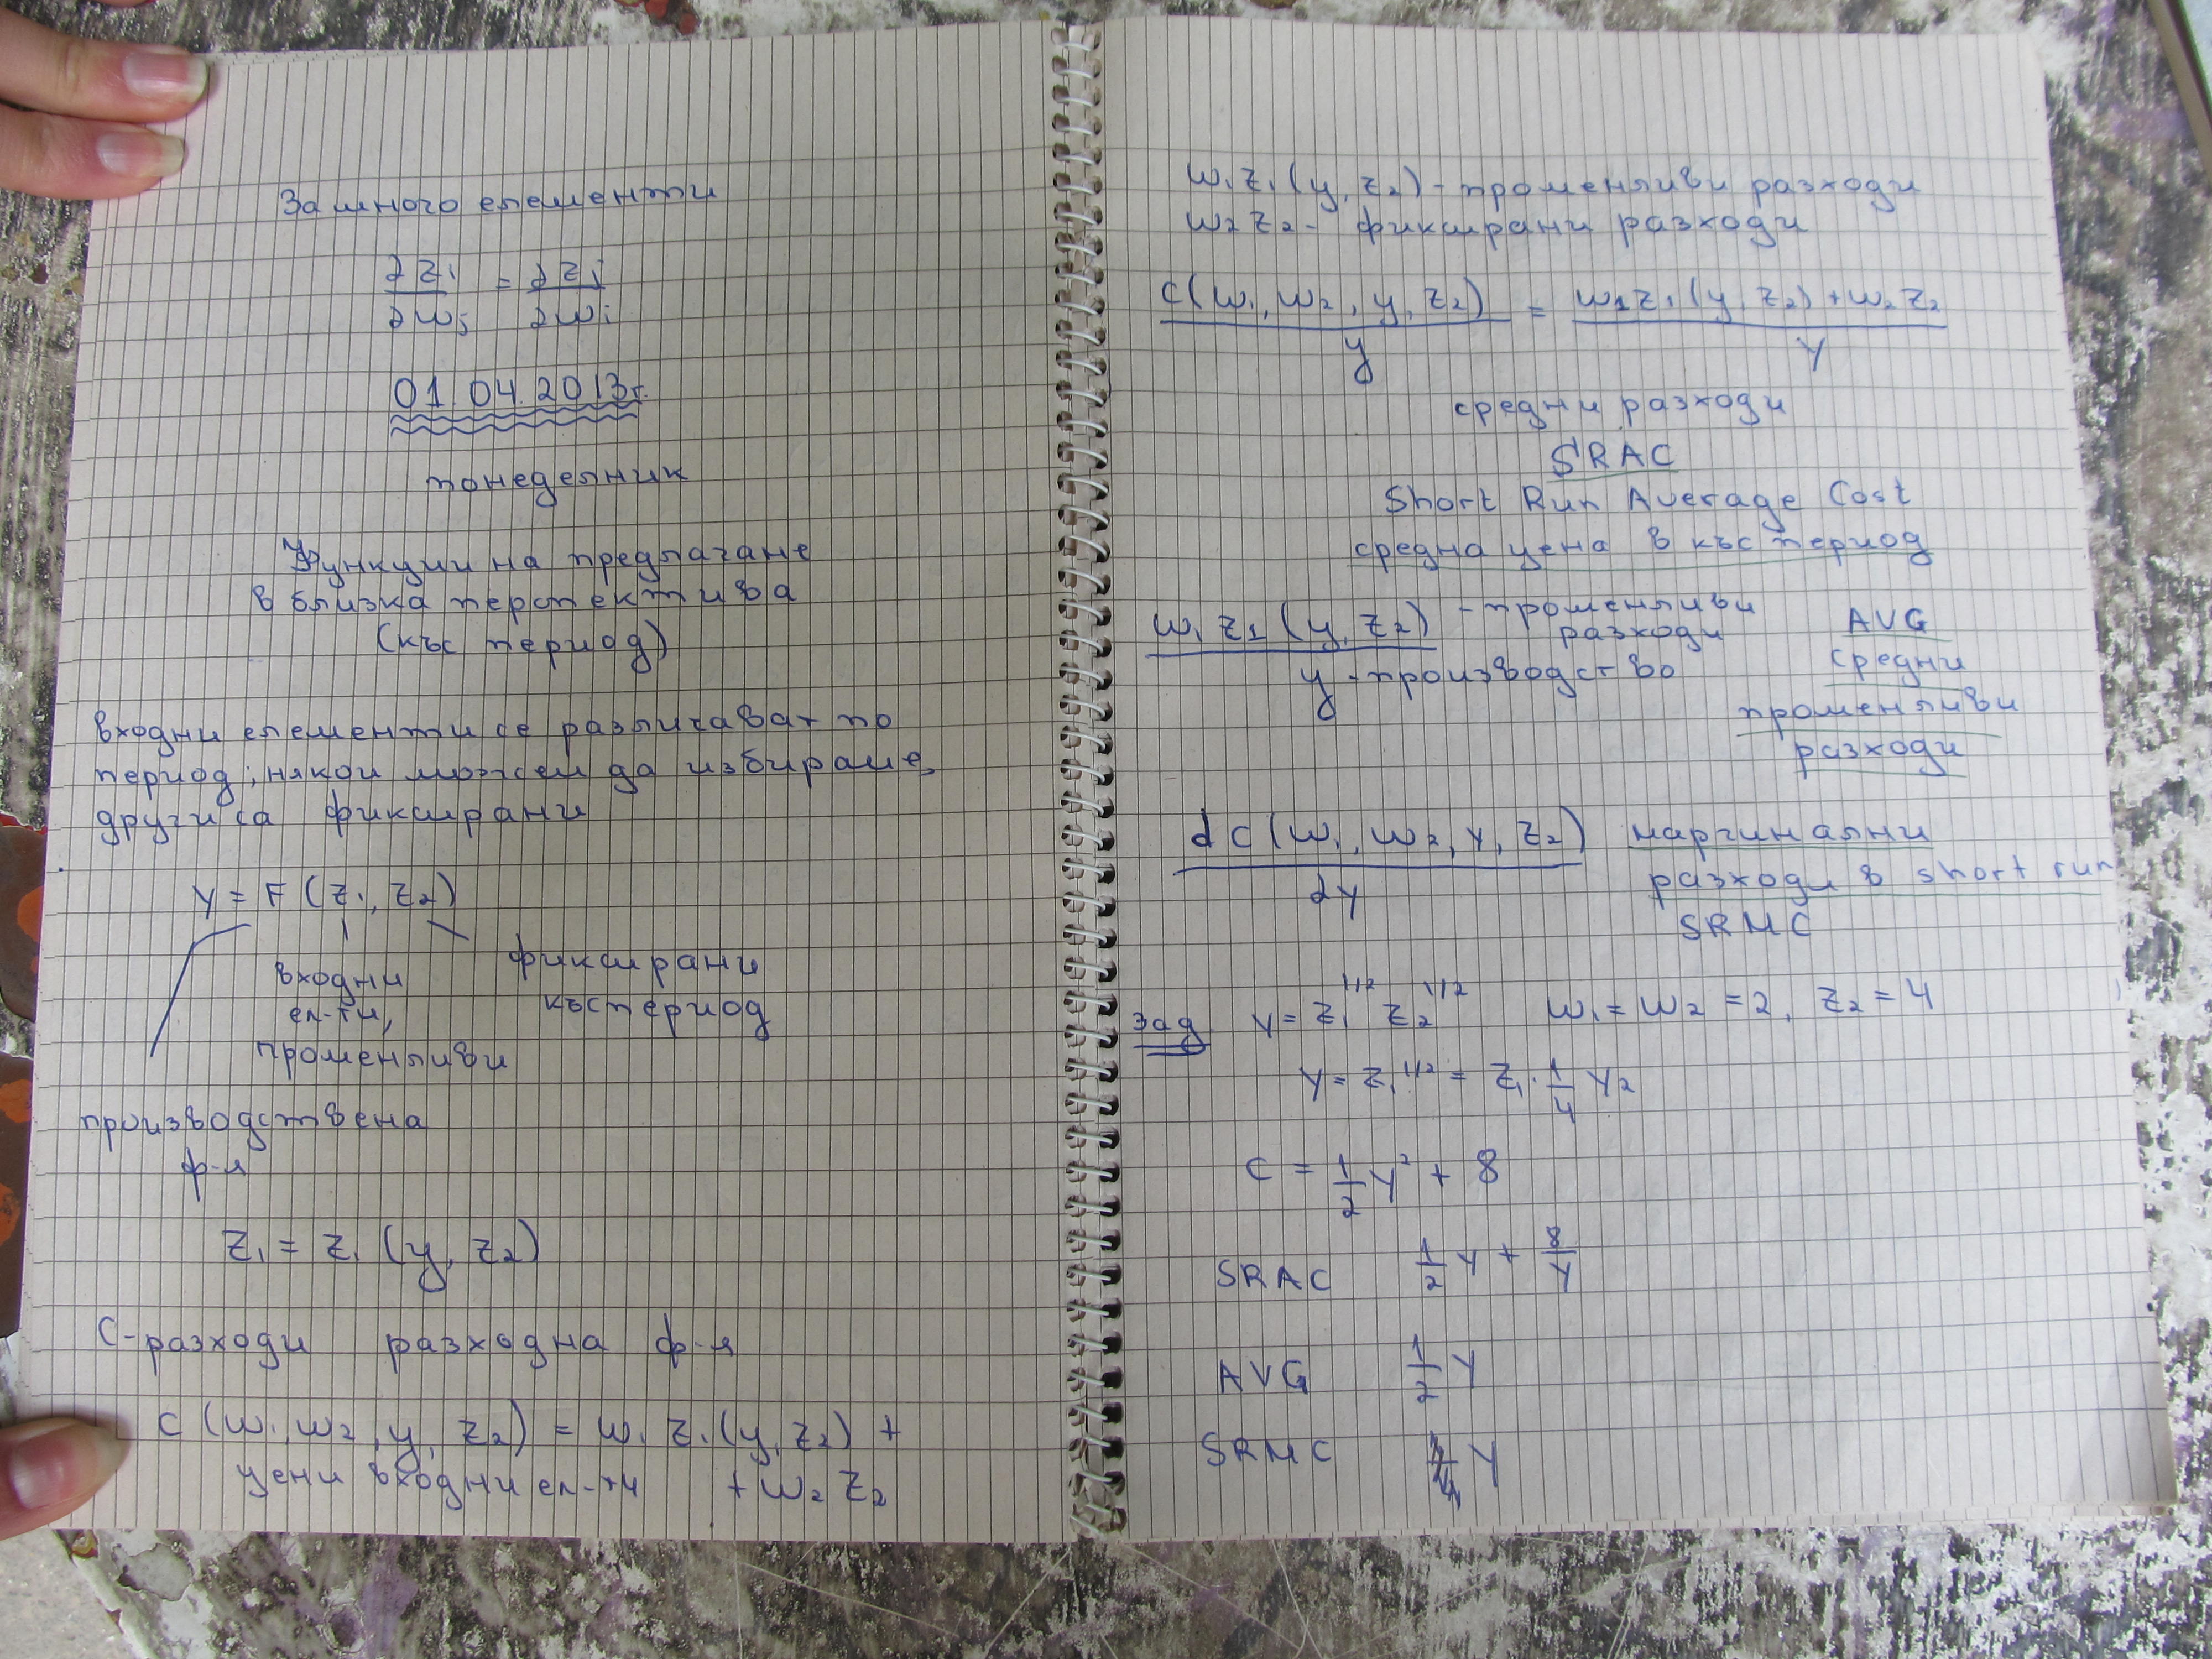 За много елементи
∂z₁/∂wⱼ = ∂zⱼ/∂wᵢ
01.04.2013г.
понеделник
Функции на предлагане
в близка перспектива
(къс период)
входни елементи се различават по
период; някои можем да избираме,
други са фиксирани
Y = F (z₁, z₂)
входни
ел-ти,
променливи
фиксирани
къс период
производствена
ф-я
z₁ = z₁ (y, z₂)
C-разходи разходна ф-я
C (w₁, w₂, y, z₂) = w₁ z₁ (y, z₂) +
цени входни ел-ти + w₂ z₂
w₁z₁ (y, z₂) - променливи разходи
w₂ z₂ - фиксирани разходи
C(w₁, w₂, y, z₂)/y = w₁z₁(y, z₂) + w₂z₂/Y
средни разходи
SRAC
Short Run Average Cost
средна цена в къс период
w₁ z₁ (y, z₂) - променливи
разходи
y - производство
AVG
средни
променливи
разходи
∂C (w₁, w₂, Y, z₂)/∂Y маргинални
разходи в short run
SRMC
зад Y = z₁^1/2 z₂^1/2 w₁ = w₂ = 2, z₂ = 4
Y = z₁^1/2 = z₁ · 1/4 Y₂
C = 1/2 Y² + 8
SRAC 1/2 Y + 8/Y
AVG 1/2 Y
SRMC Y